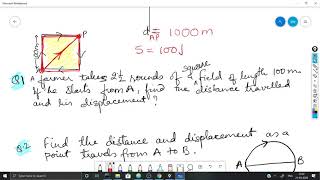 P
d = 1000 m
AP
S = 100√
100m
A
Q1 A farmer takes 2½ rounds of a square field of length 100 m.
If he starts from A, find the distance travelled
and his displacement?
Q.2 Find the distance and displacement as a
point travels from A to B.
A B